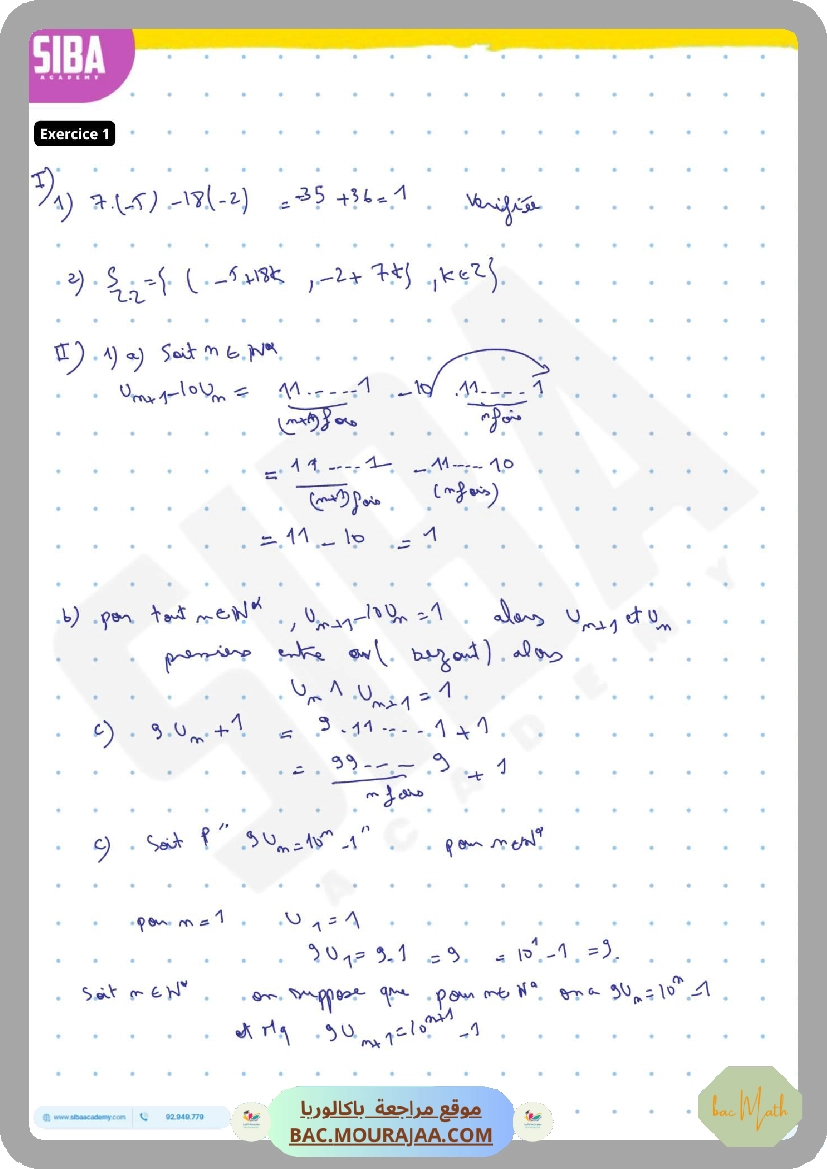 SIBA
ACADEMY
Exercice 1
I)
1) 7.(-5) -18(-2) = -35 +36 = 1 Verifiée
2) S_Z² = { ( -5+18k , -2+ 7k) , k∈Z}
II) 1) a) Soit n ∈ IN*
U_n+1 -10U_n = 11.....1 -10 .11....1
(n+1) fois n fois
= 11 ....1 - 11....10
(n+1) fois (n fois)
= 11 - 10 = 1
b) pour tout n∈IN*, U_n+1 -10U_n = 1 alors U_n+1 et U_n
premiers entre eux ( bezout) alors
U_n ∧ U_n+1 = 1
c) 9.U_n + 1 = 9.11....1 + 1
= 99---9 + 1
n fois
c) Soit P " 9U_n = 10^n -1 " pour n∈IN*
pour n = 1 U_1 = 1
9U_1 = 9.1 = 9 = 10^1 -1 = 9.
Soit n ∈ IN* on suppose que pour n∈IN* on a 9U_n = 10^n -1
et Mq 9U_n+1 = 10^n+1 -1
SIBA
ACADEMY
www.sibaacademy.com 92.949.779
موقع مراجعة باكالوريا
BAC.MOURAJAA.COM
bac Math